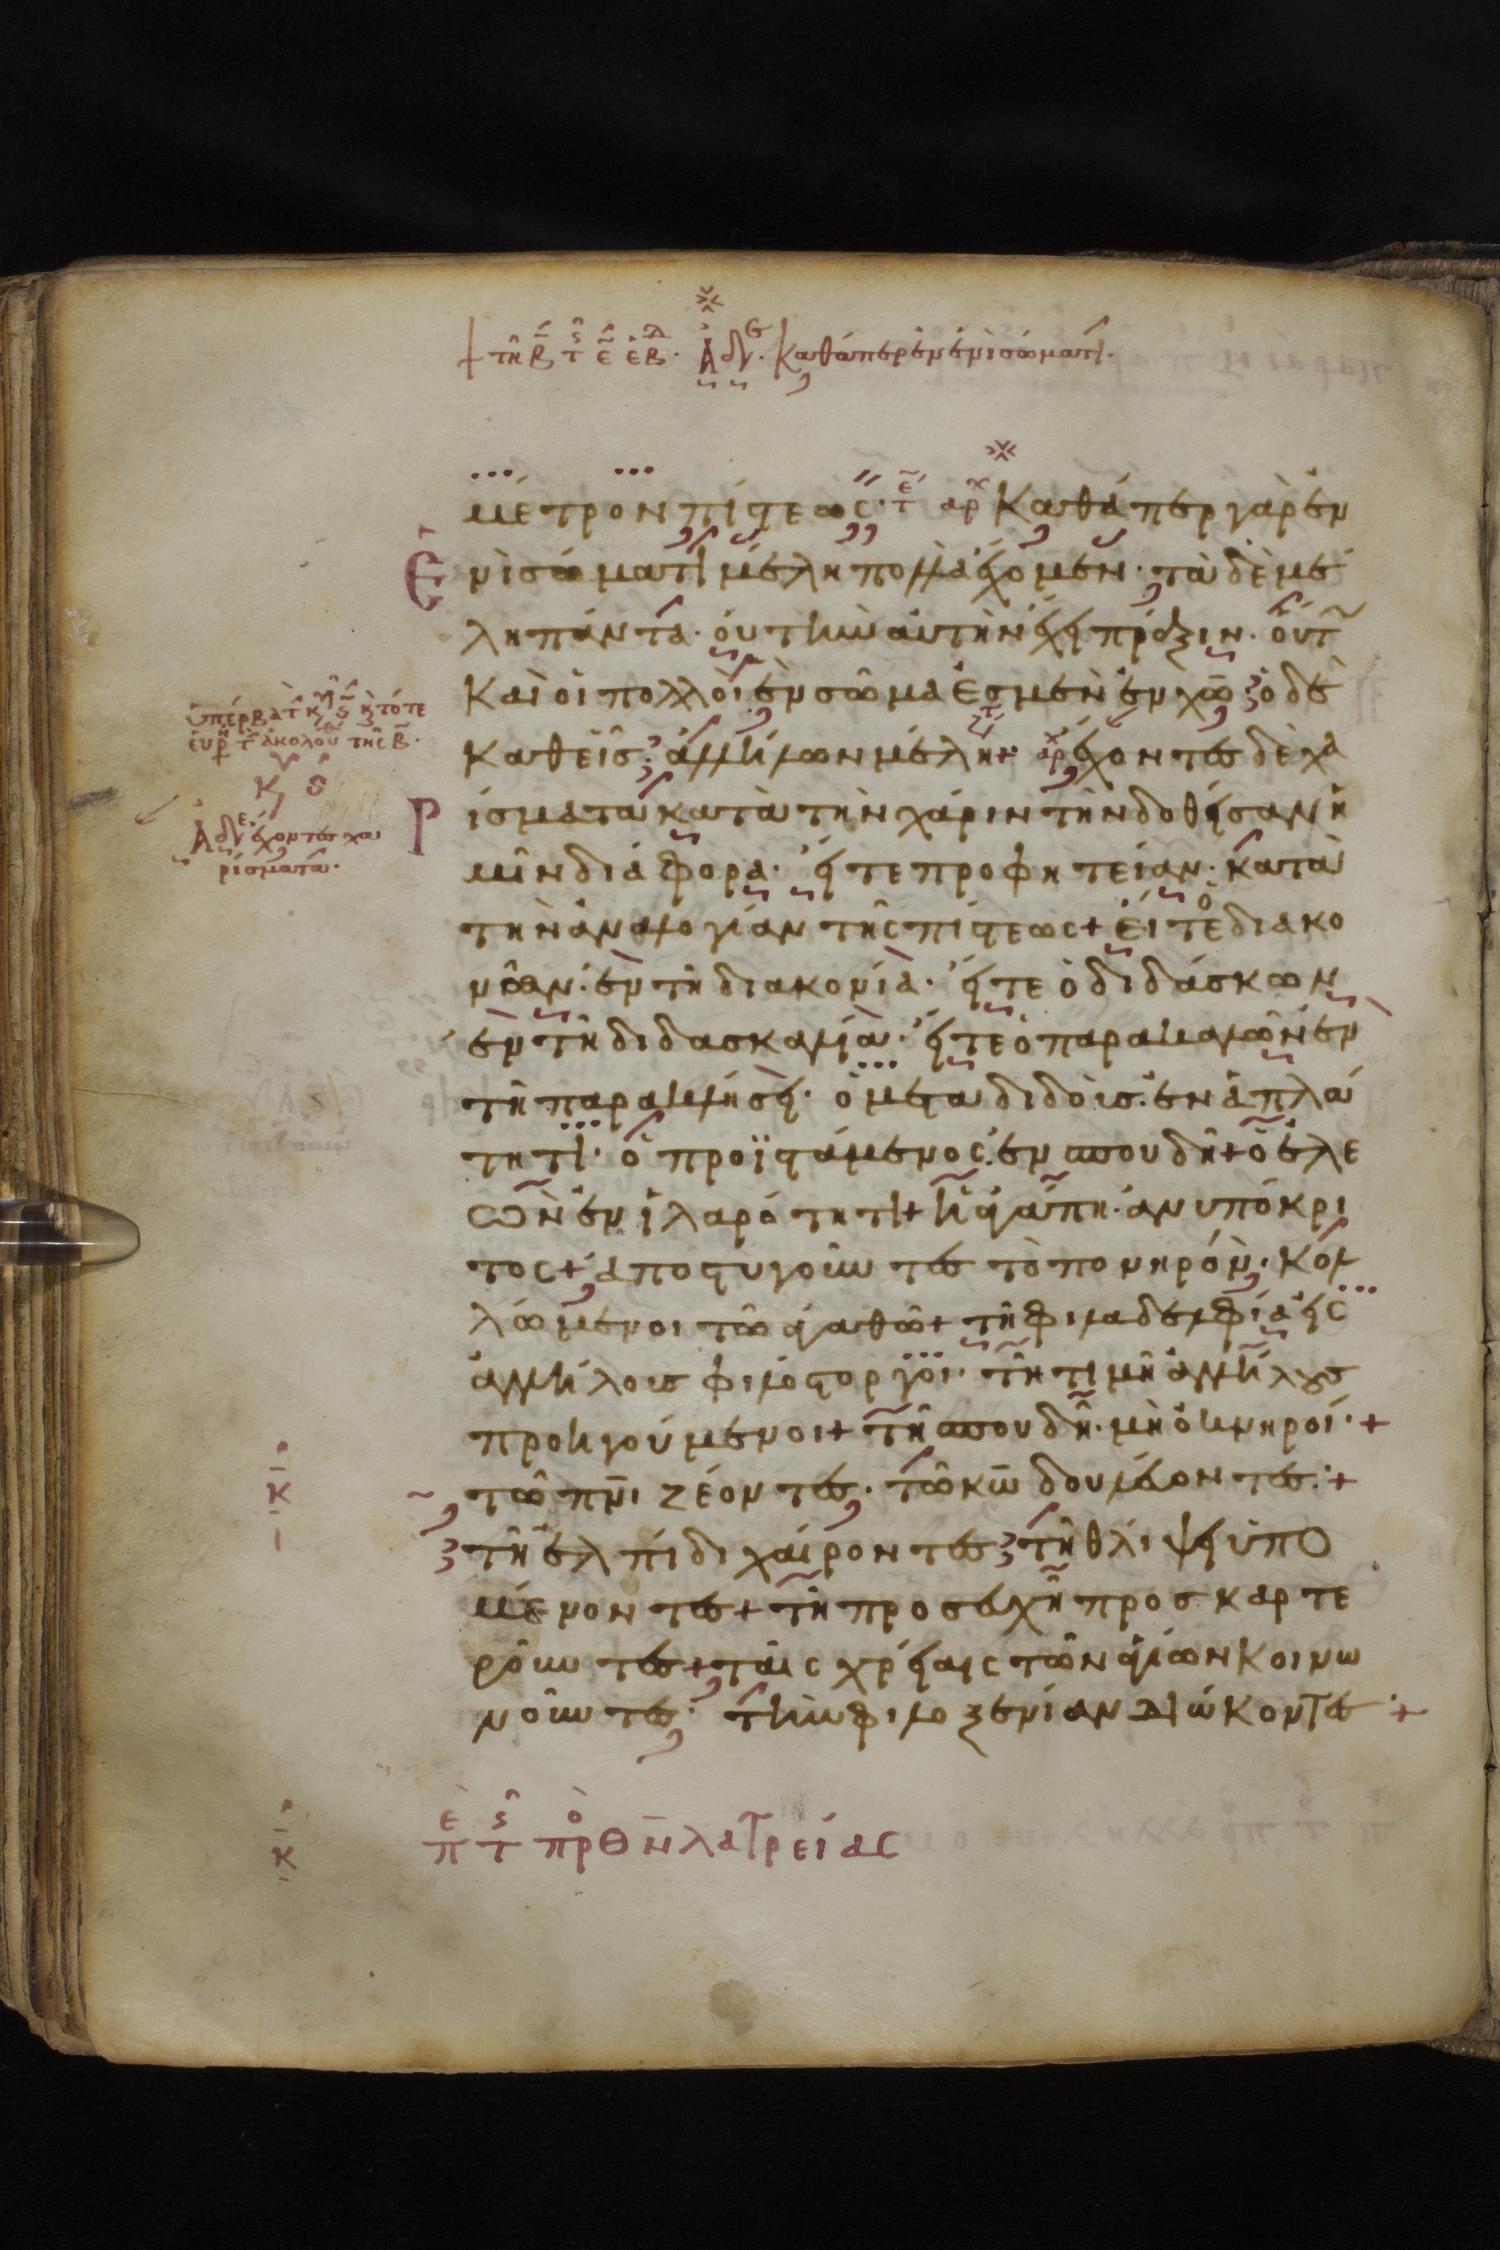 τῇ β τ ε ἑβ. Ἀδλ. καθάπερ ἐν ἑνὶ σώματι.
μέτρον πίστεως· τε αρχ Καθάπερ γὰρ ἐν
ἑνὶ σώματι μέλη πολλὰ ἔχομεν· τὰ δὲ μέ
λη πάντα· οὐ τὴν αὐτὴν ἔχει πρᾶξιν· οὕτ
καὶ οἱ πολλοὶ ἐν σῶμα ἐσμεν ἐν χῶ· ὁ δὲ
καθεῖς· ἀλλήλων μέλη + αρχ ἔχοντες δὲ χα
ρίσματα κατὰ τὴν χάριν τὴν δοθεῖσαν ἡ
μῖν διάφορα· εἴτε προφητείαν· κατὰ
τὴν ἀναλογίαν τῆς πίστεως + εἴτε ὁ διακο
νῶν· ἐν τῇ διακονία· εἴτε ὁ διδάσκων
ἐν τῇ διδασκαλία· εἴτε ὁ παρακαλῶν ἐν
τῇ παρακλήσει· ὁ μεταδιδοὺς· ἐν ἁπλό
τητι· ὁ προϊστάμενος· ἐν σπουδῇ + ὁ ἐλε
ῶν ἐν ἱλαρότητι + ἡ ἀγάπη· ἀνυπόκρι
τος + ἀποστυγοῦντες τὸ πονηρόν· κολ
λώμενοι τῶ ἀγαθῶ + τῇ φιλαδελφία εἰς
ἀλλήλους φιλόστοργοι· τῇ τιμῇ ἀλλήλους
προηγούμενοι + τῇ σπουδῇ· μὴ ὀκνηροί· +
τῶ πνι ζέοντες· τῶ κω δουλεύοντες· +
τῇ ἐλπίδι χαίροντες τῇ θλίψει ὑπο
μένοντες + τῇ προσευχῇ προσκαρτε
ροῦντες + ταῖς χρείαις τῶν ἁγίων κοινω
νοῦντες· τὴν φιλοξενίαν διώκοντες· +
ὑπέρβα τ κ, ς κ τότε
εὑρ τ ἀκολου τῆς β.
κ, ς
Ἀδλ ε. ἔχοντες χα
ρίσματα.
κ
κ
π τ πρ Θν λατρείας